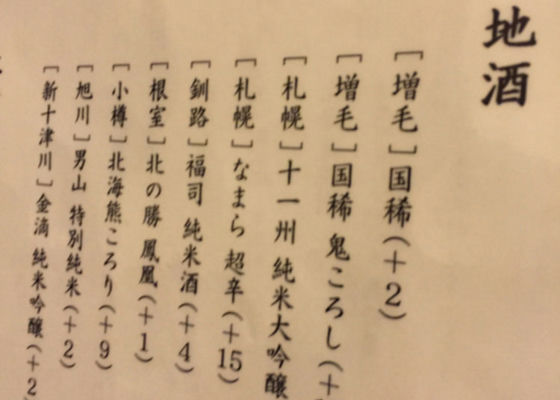 地酒
[増毛]国稀(+2)
[増毛]国稀 鬼ころし(+
[札幌]十一州 純米大吟醸
[札幌]なまら 超辛(+15)
[釧路]福司 純米酒(+4)
[根室]北の勝 鳳凰(+1)
[小樽]北海熊ころり(+9)
[旭川]男山 特別純米(+2)
[新十津川]金滴 純米吟醸(+2